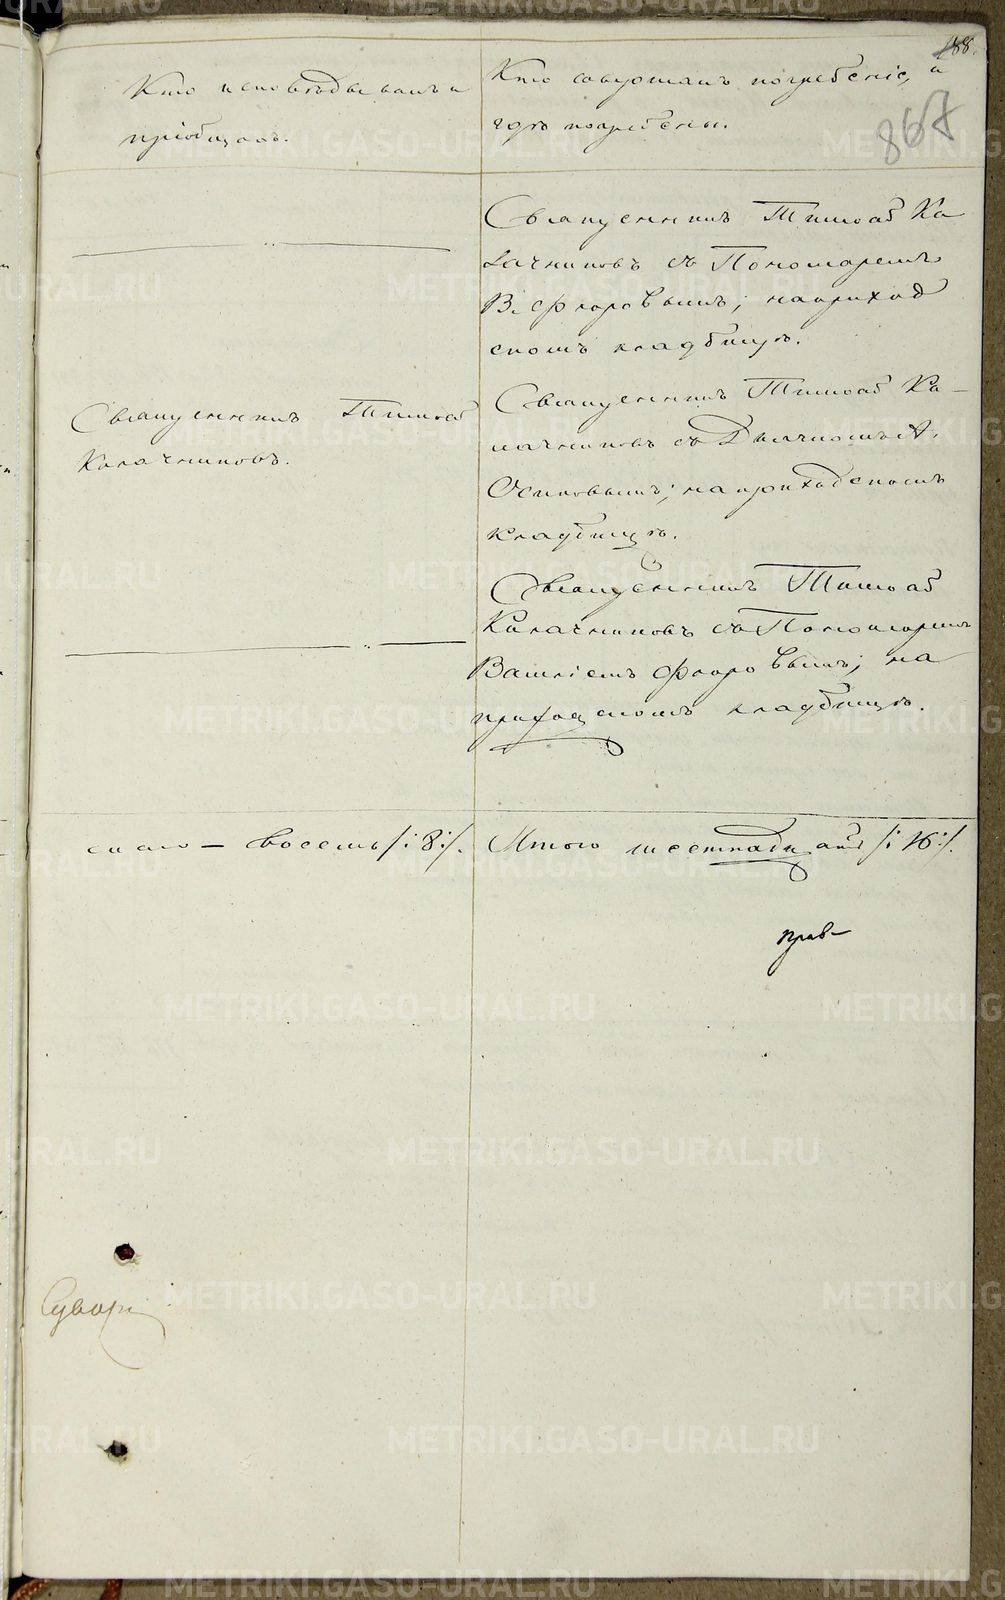 88.
867
Кто исповѣдывалъ и
пріобщалъ.
Кто совершалъ погребеніе, и
гдѣ погребены.
Священникъ Тимоѳей Ка
лачниковъ съ Пономаремъ
В. Флоровымъ; на приход
скомъ кладбищѣ.
Священникъ Тимоѳей
Калачниковъ.
Священникъ Тимоѳей Ка-
лачниковъ съ Дьячкомъ А.
Осиповымъ; на приходскомъ
кладбищѣ.
Священникъ Тимоѳей
Калачниковъ съ Пономаремъ
Флоровымъ; на
приходскомъ кладбищѣ.
скаго – восемь /: 8 :/.
Итого шестнадцать /: 16 :/.
METRIKI.GASO-URAL.RU